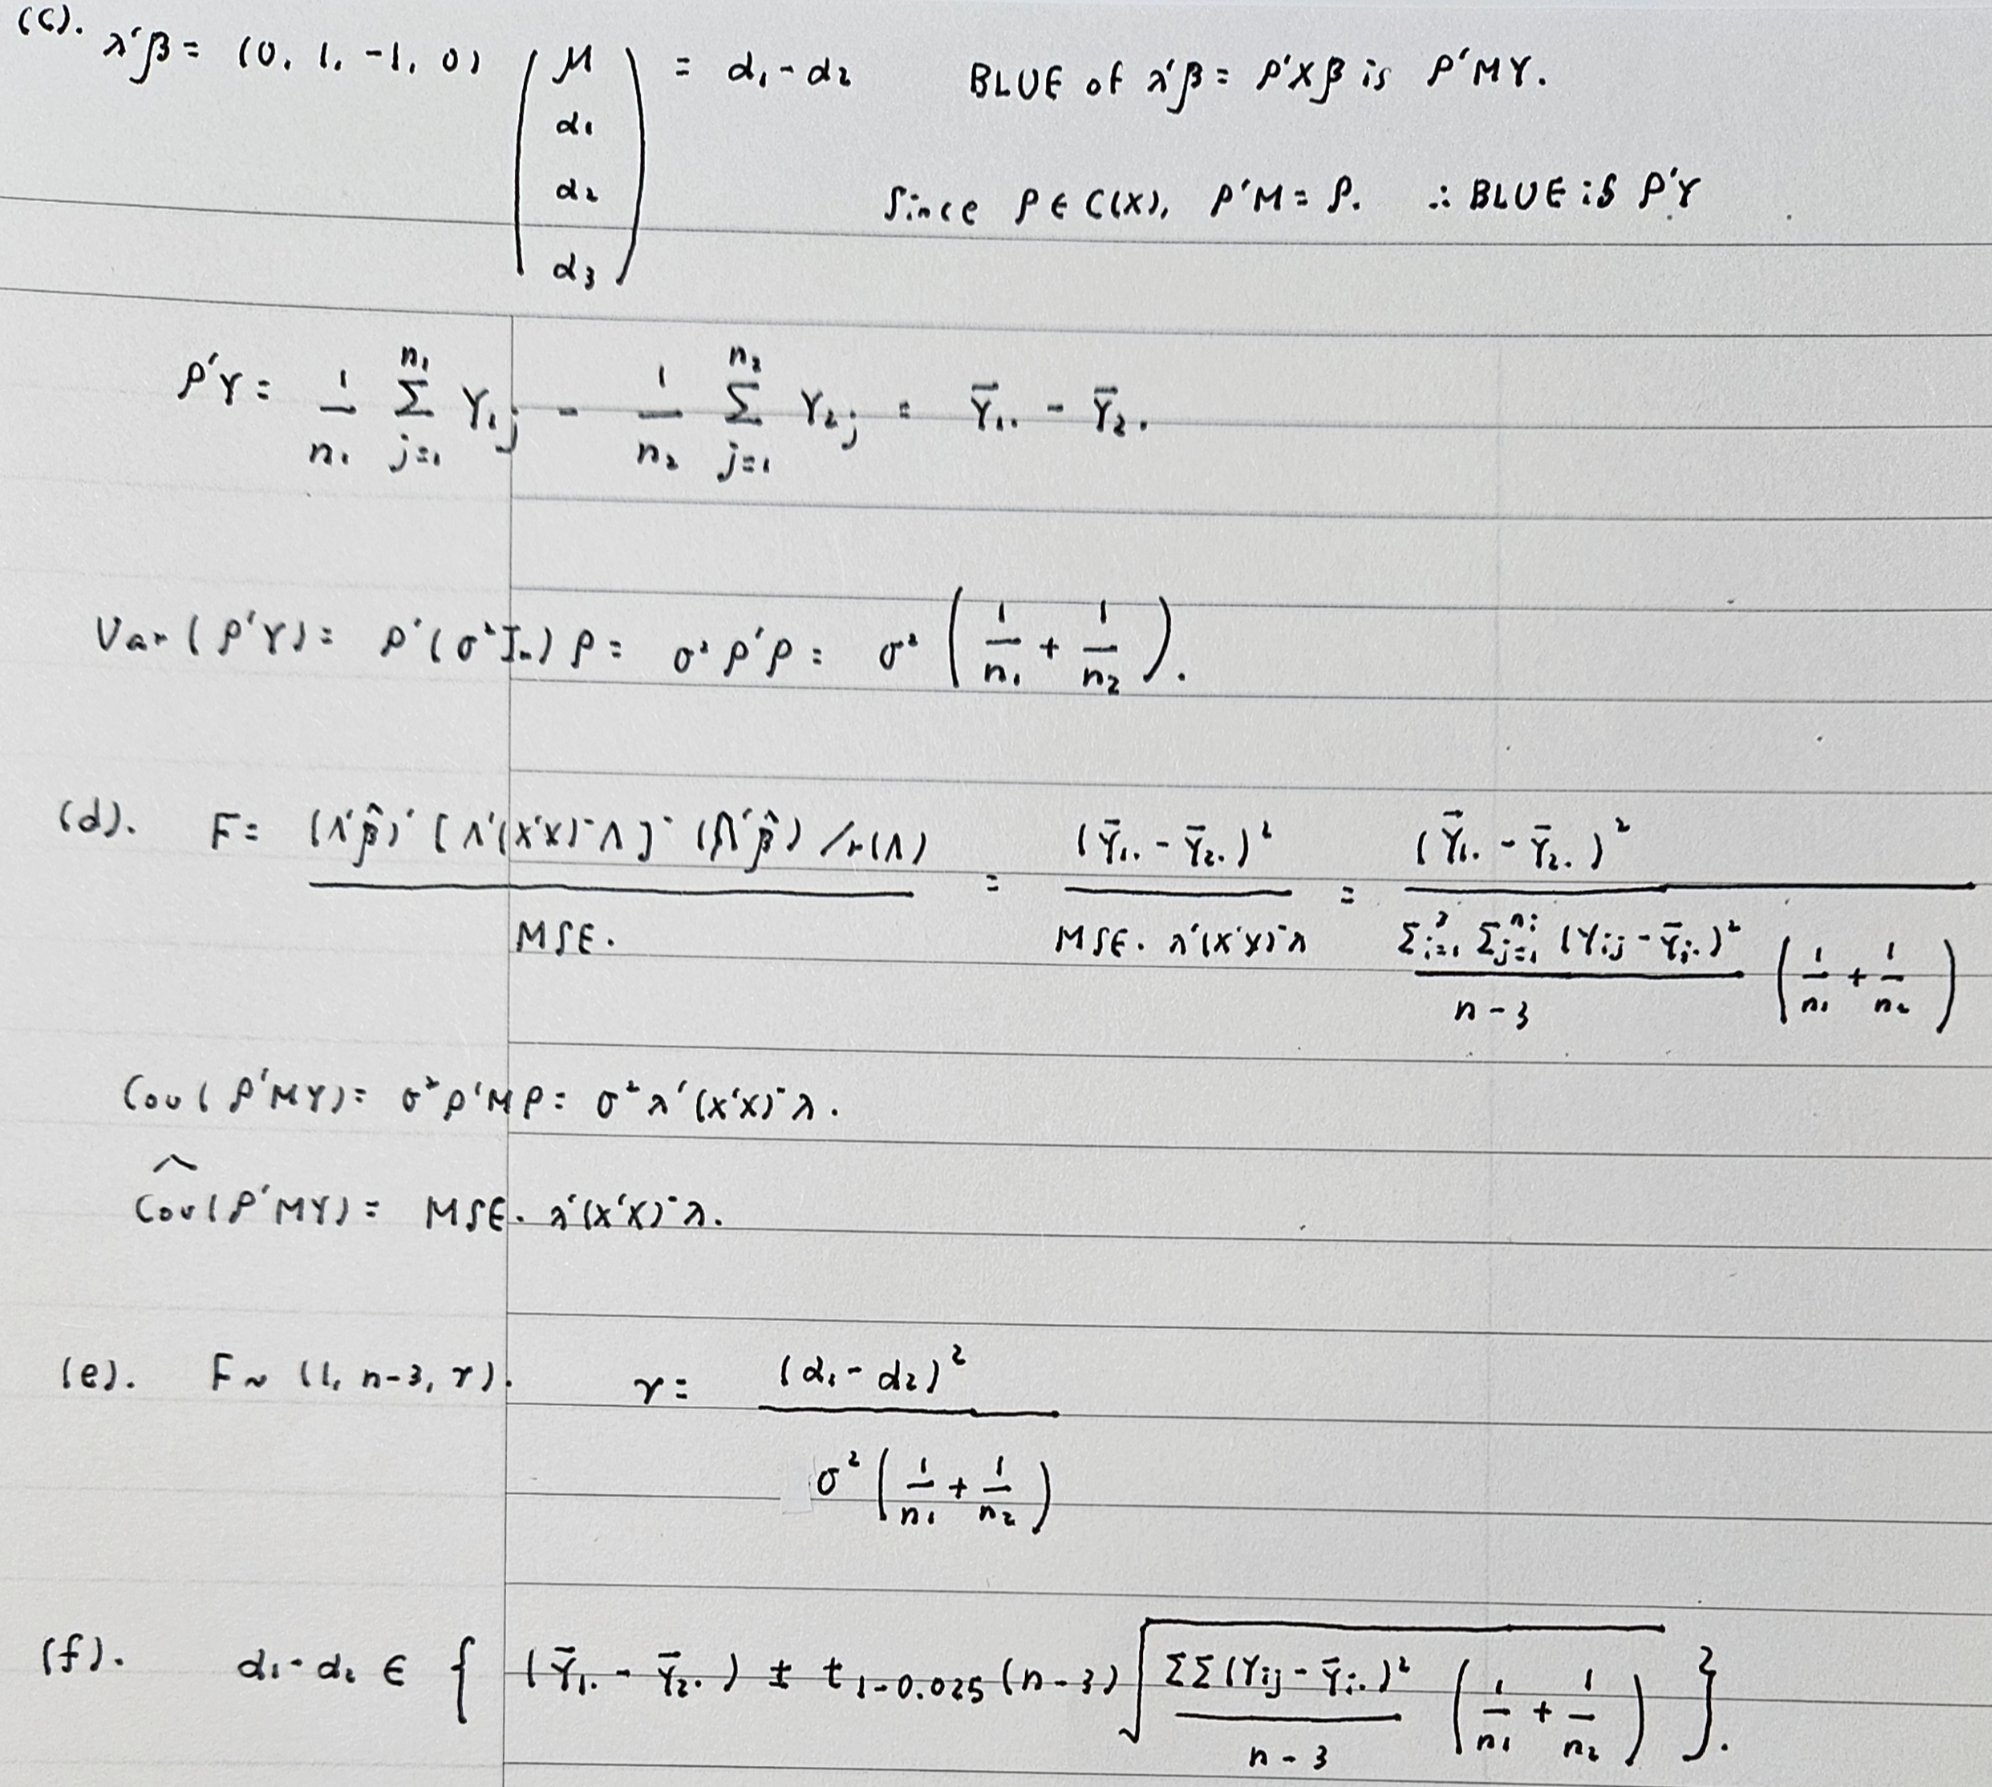 (c). λ'β = (0, 1, -1, 0) (μ α₁ α₂ α₃) = α₁ - α₂ BLUE of λ'β = ρ'Xβ is ρ'MY.
Since ρ ∈ C(X), ρ'M = ρ. ∴ BLUE is ρ'Y
ρ'Y = 1/n₁ Σ_{j=1}^{n₁} Y₁j - 1/n₂ Σ_{j=1}^{n₂} Y₂j = Ȳ₁. - Ȳ₂.
Var(ρ'Y) = ρ'(σ²Iₙ)ρ = σ²ρ'ρ = σ² (1/n₁ + 1/n₂).
(d). F = (Λ'β̂)' [Λ'(X'X)⁻Λ]⁻ (Λ'β̂) / r(Λ) / MSE. = (Ȳ₁. - Ȳ₂.)² / MSE · λ'(X'X)⁻λ = (Ȳ₁. - Ȳ₂.)² / Σ_{i=1}^{3} Σ_{j=1}^{nᵢ} (Yij - Ȳi.)² / n-3 (1/n₁ + 1/n₂)
Cov(ρ'MY) = σ²ρ'Mρ = σ²λ'(X'X)⁻λ.
Cov^(ρ'MY) = MSE · λ'(X'X)⁻λ.
(e). F ~ (1, n-3, γ). γ = (α₁ - α₂)² / σ² (1/n₁ + 1/n₂)
(f). α₁ - α₂ ∈ { (Ȳ₁. - Ȳ₂.) ± t_{1-0.025} (n-3) √( ΣΣ(Yij - Ȳi.)² / n-3 (1/n₁ + 1/n₂) ) }.